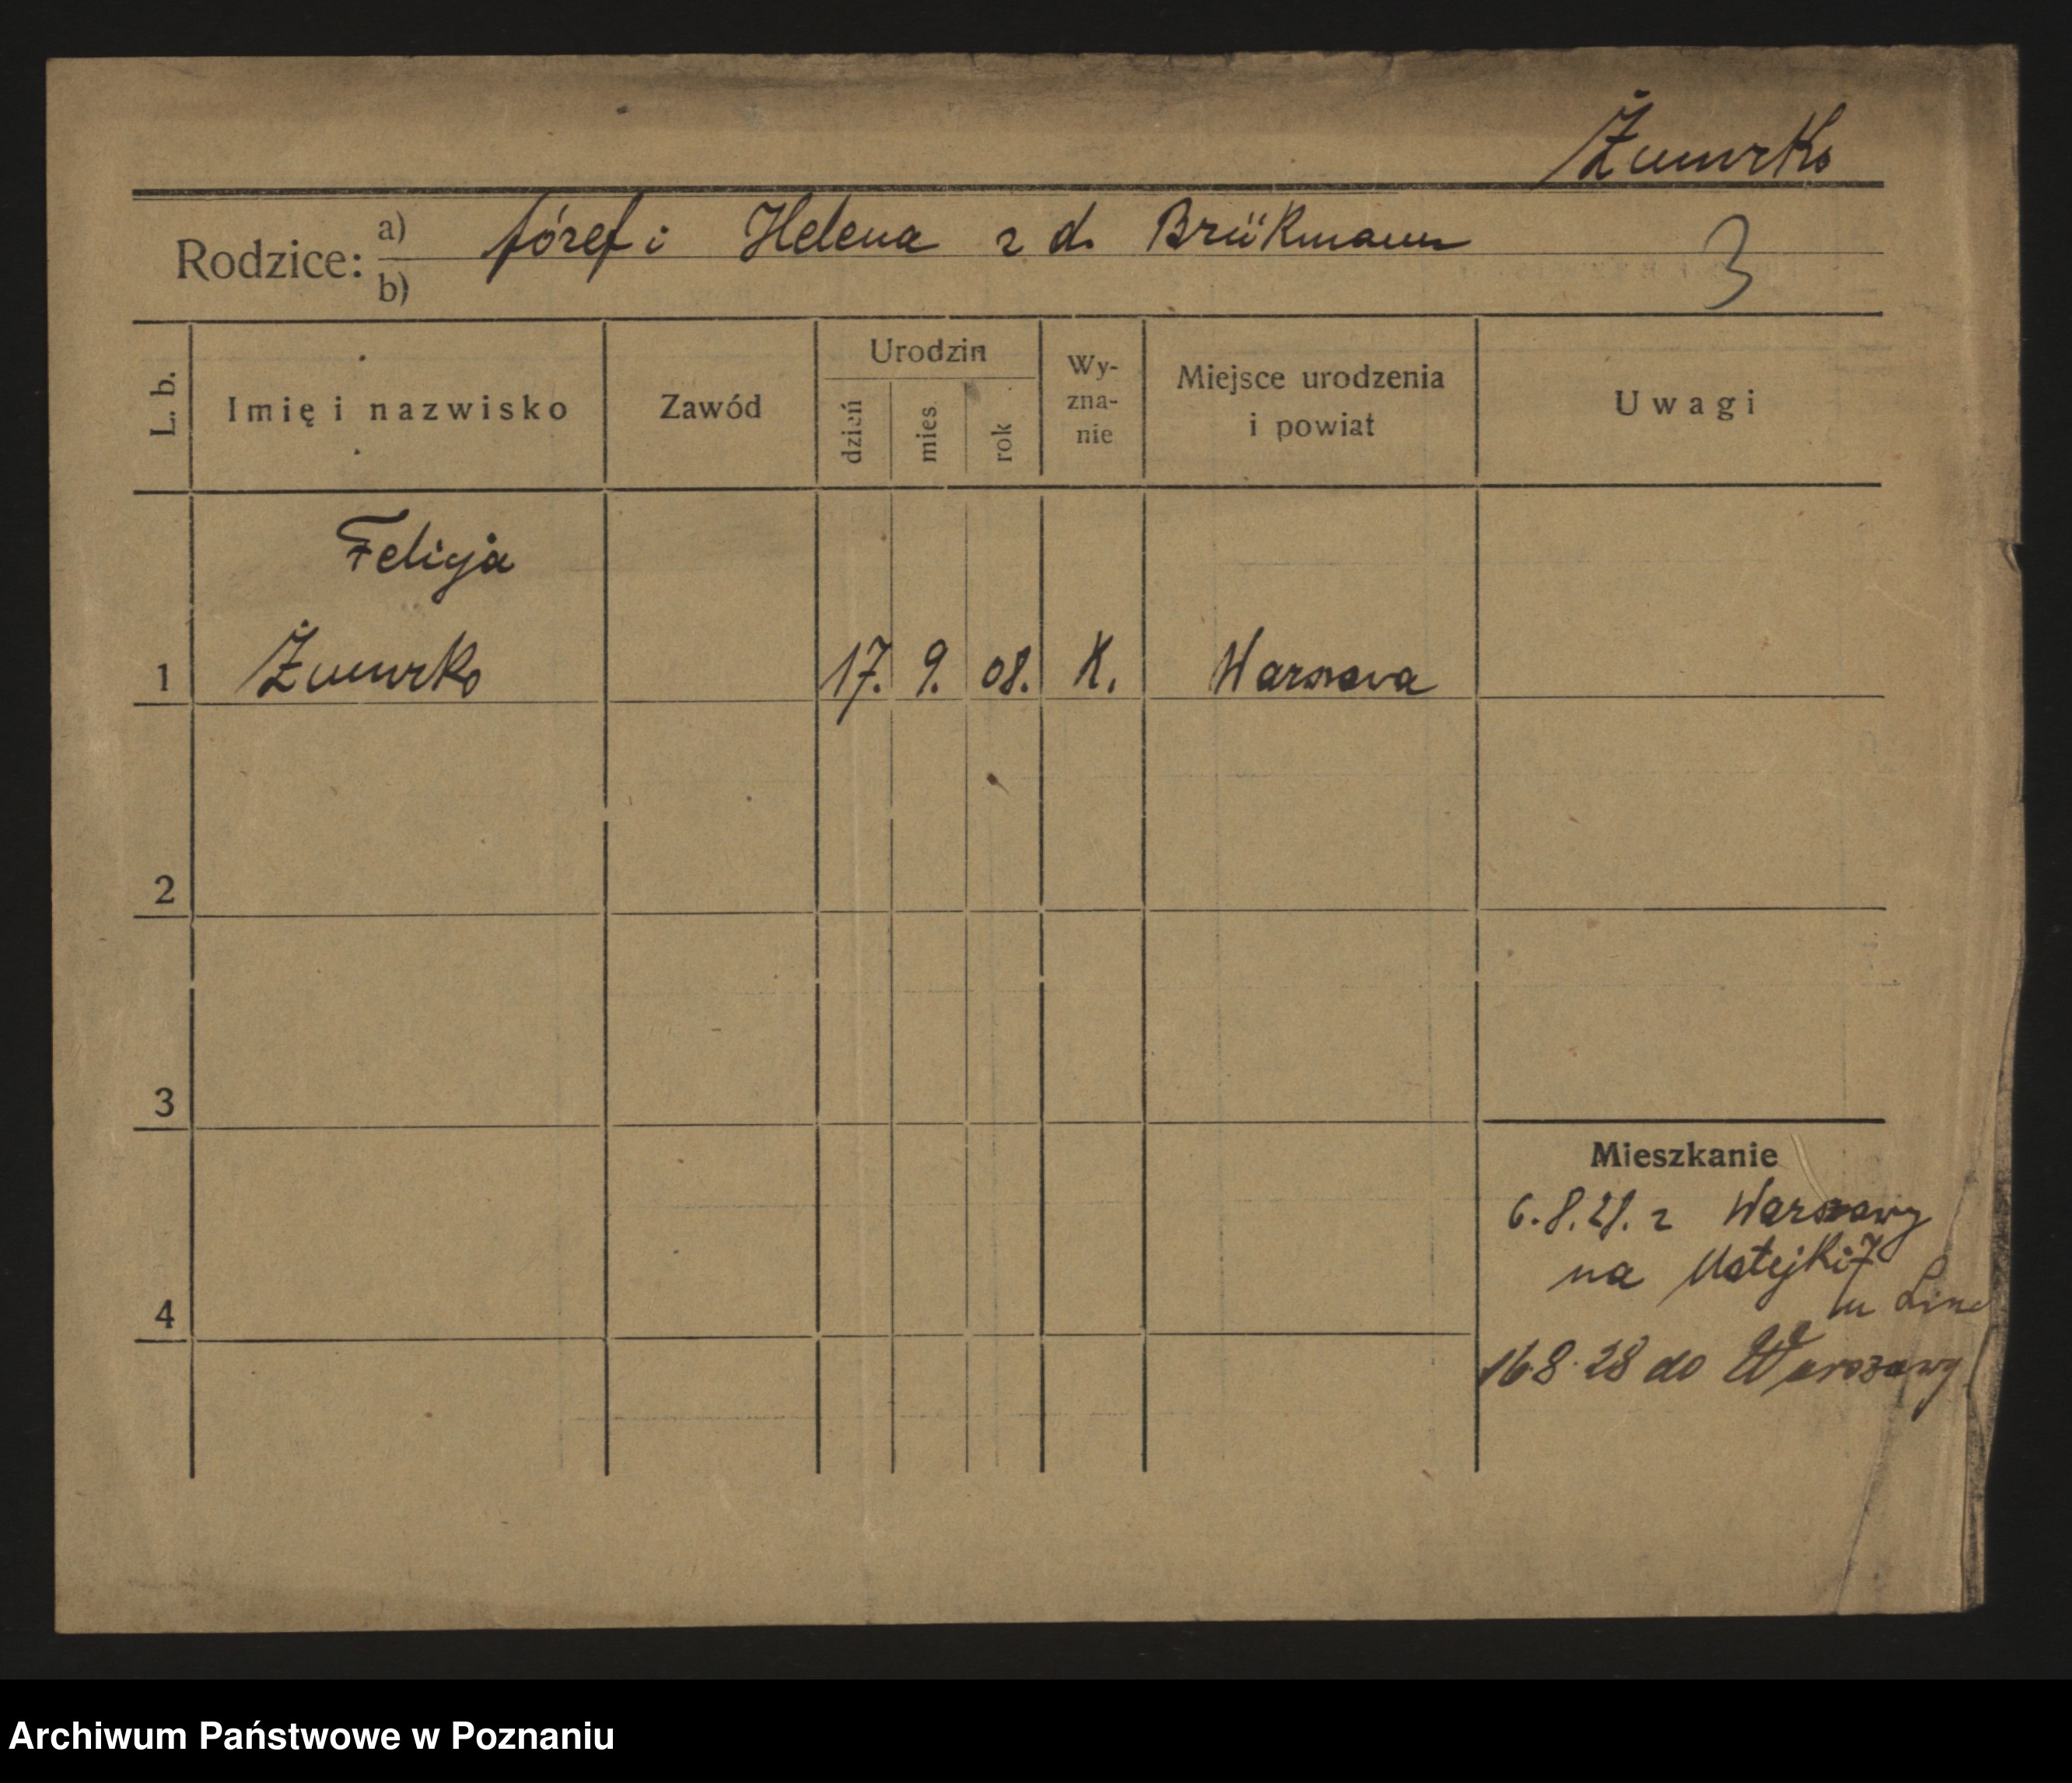 Żmurko
Rodzice: a) Józef i Helena z d. Brükmann
b)
3
L. b.
Imię i nazwisko
Zawód
Urodzin
dzień
mies.
rok
Wy-
zna-
nie
Miejsce urodzenia
i powiat
Uwagi
Felicja
1 Żmurko 17. 9. 08. K. Warszawa
2
3
Mieszkanie
6.8.28. z Warszawy
na Matejki 7
u
4
16.8.28 do Warszawy
Archiwum Państwowe w Poznaniu